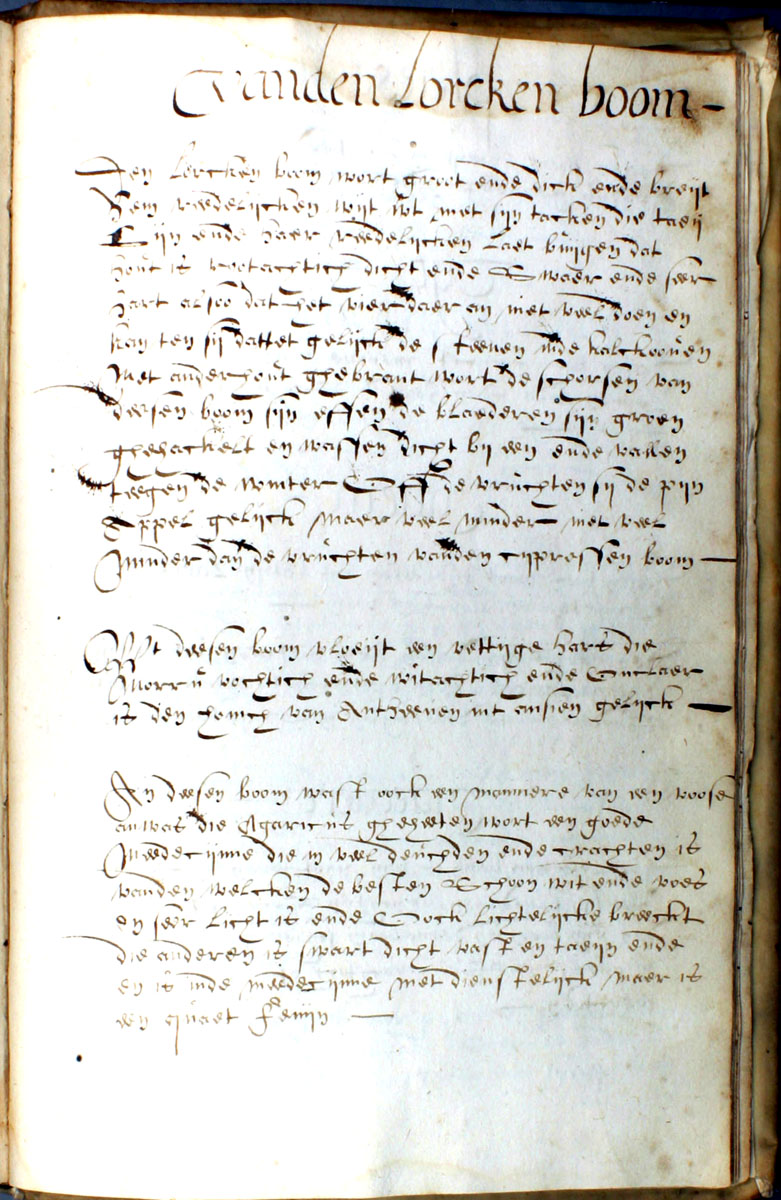 Vanden Lorcken boom
Den Lorcken boom wort groot ende dick ende breijt
hem reedelijcken wijt wt met sijn tacken die taeij
Sijn ende haer reedelijcken Laet buijgen dat
hout is rootachtich dicht ende Swaer ende seer
hart alsoo dat het vier daer an niet veel doen en
kan ten sij dattet gelijck de steenen inde kalckooven
Met ander hout ghebrant wort de schorsen van
deesen boom sijn effen de blaederen sijn groen
ghehackelt en wassen dicht bij een ende vallen
teegen de winter Off de vruchten sij de pijn
Appel gelijck maer veel minder niet veel
Minder dan de vruchten vanden cijpressen boom
Wt deesen boom vloeijt een vettijge hars die
Morru vochtich ende witachtich ende Onclaer
is den honich van Antheenen int ansien gelijck
An deesen boom wast oock een manniere van een voose
anwas die Agaricus gheheeten wort een goede
Meedecijnne die in veel deuchden ende crachten is
vanden welcken de besten Schoon wit ende voos
en seer licht is ende Oock lichtelijcke breeckt
die anderen is swart dicht vast en taeijn ende
en is inde meedecijnne niet dienstelijck maer is
een quaet fenijn